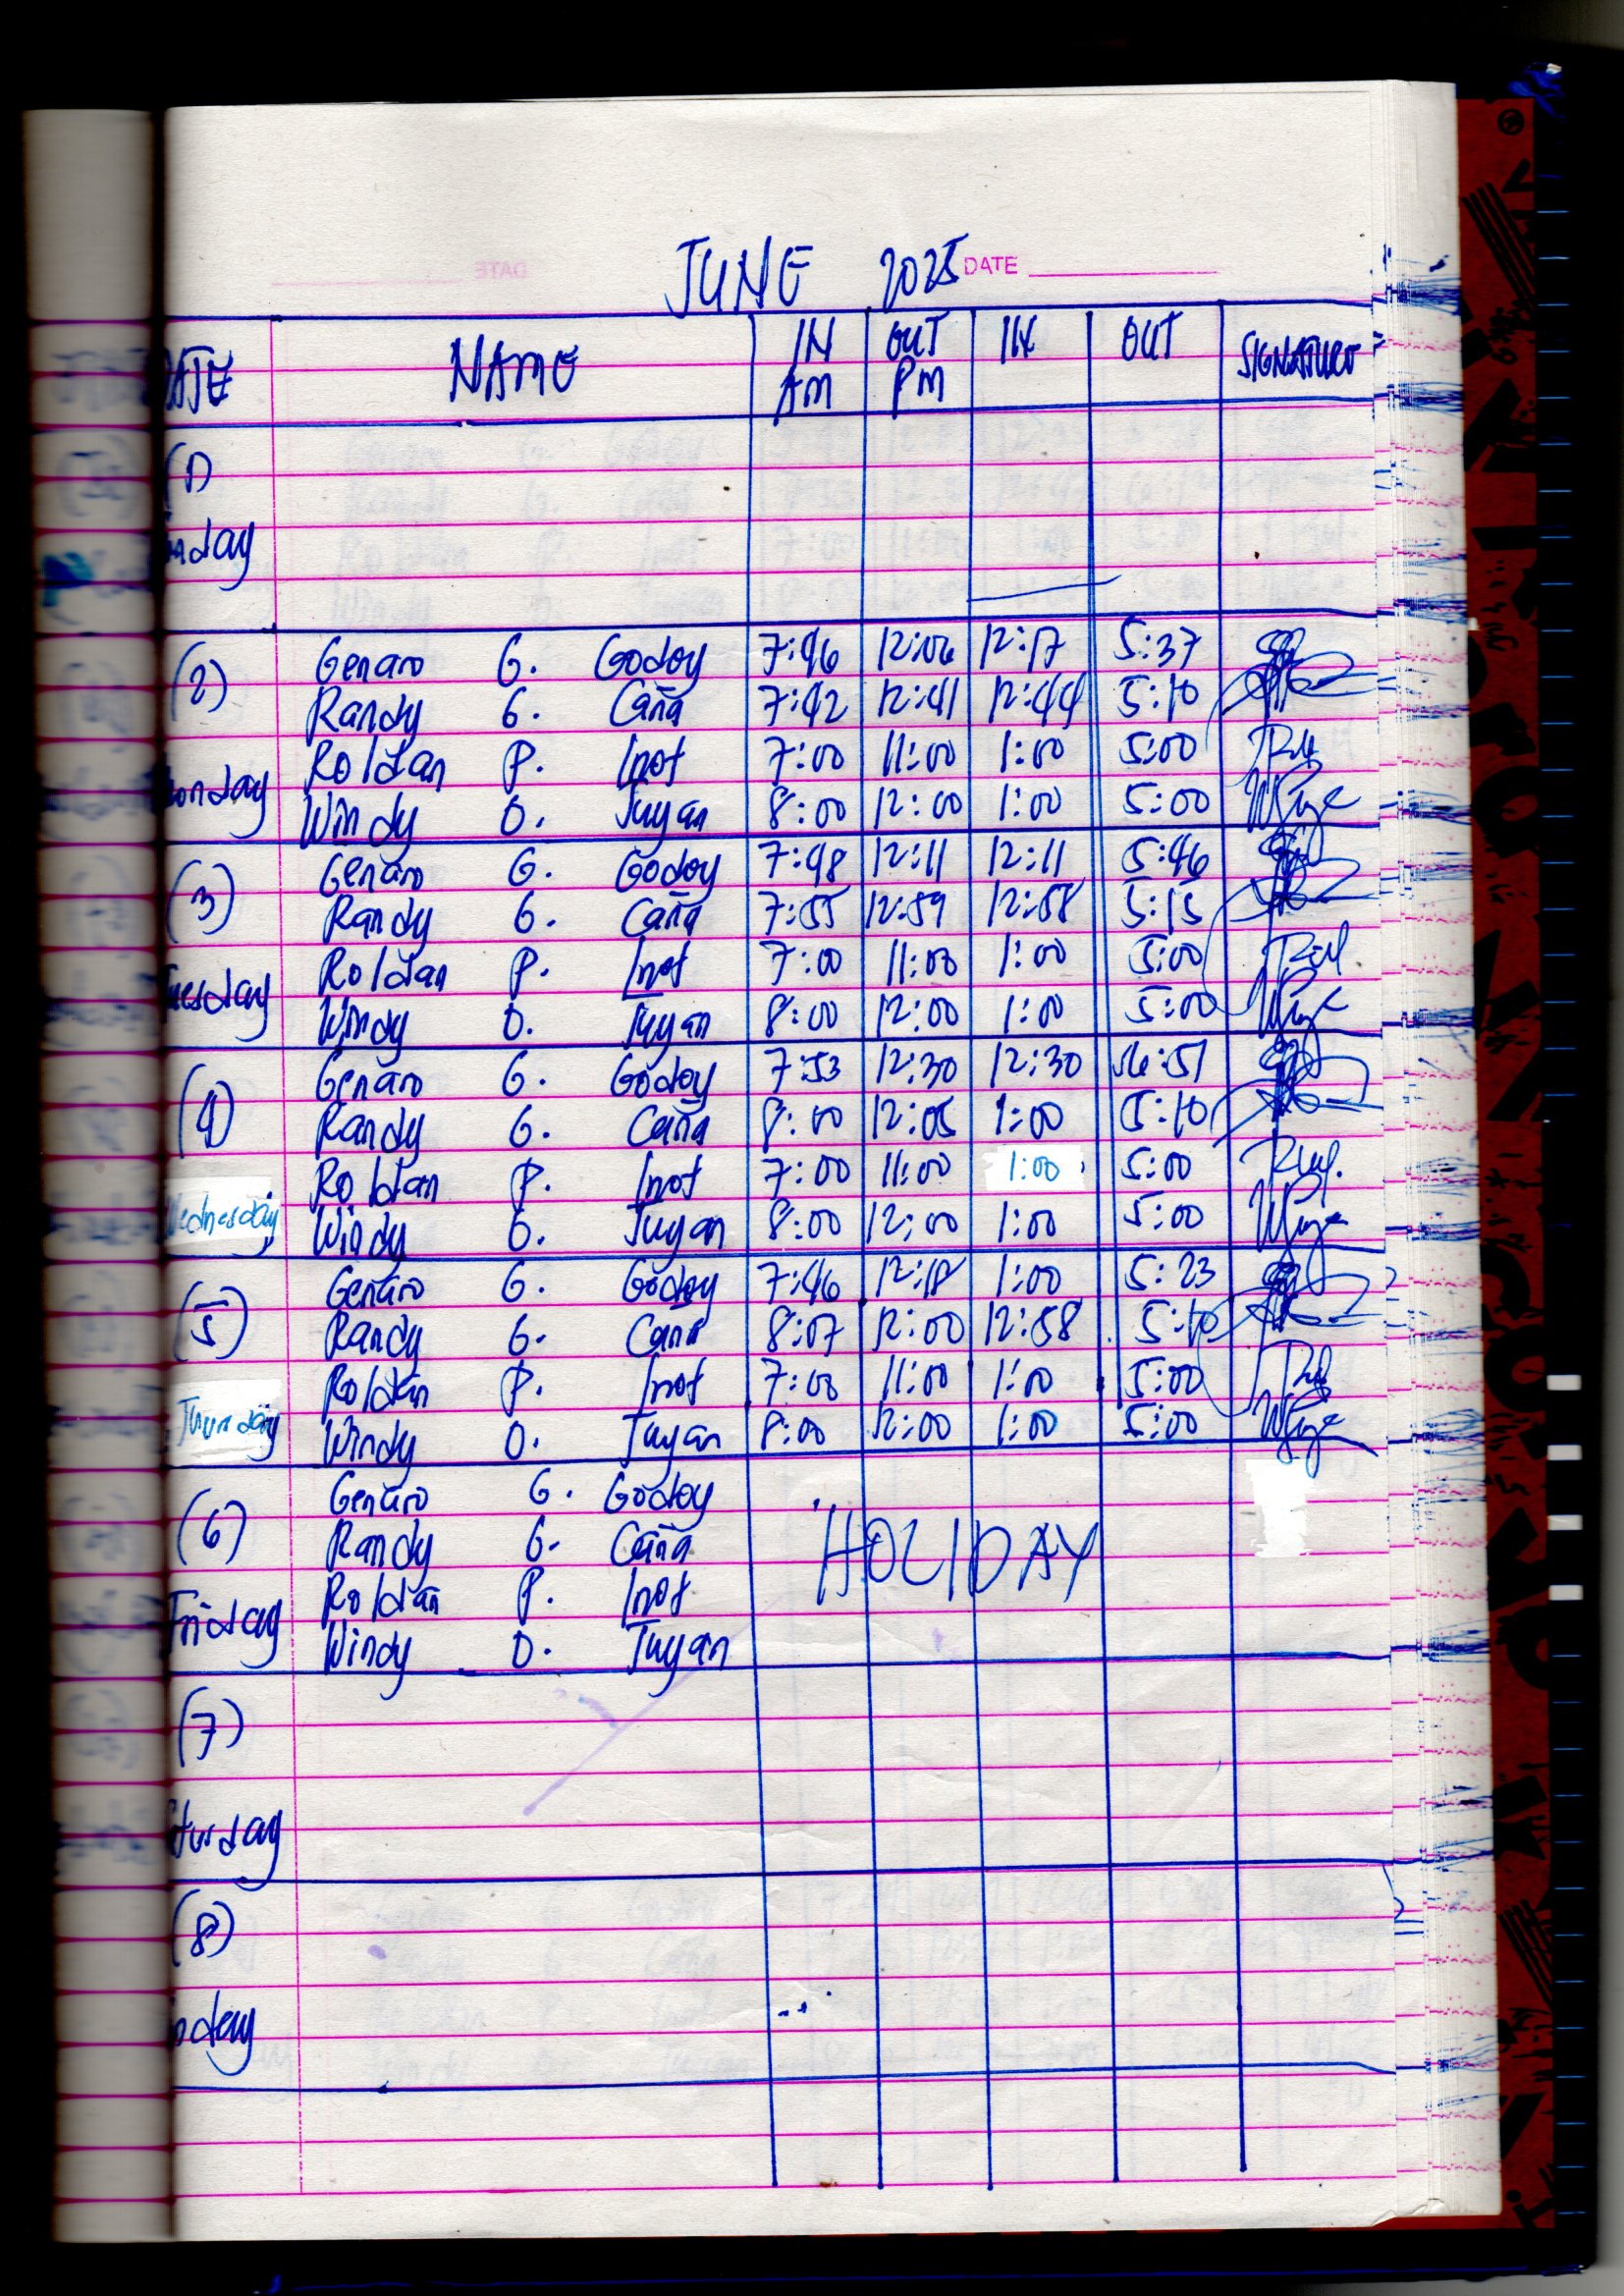 JUNE 2025 DATE
DATE NAME IN AM OUT PM IN OUT SIGNATURE
(1)
(2) Genaro G. Godoy 7:46 12:06 12:17 5:37
Randy G. Caña 7:42 12:41 12:44 5:10
Roldan P. Inot 7:00 11:00 1:00 5:00
onday Windy O. Tuyan 8:00 12:00 1:00 5:00
(3) Genaro G. Godoy 7:48 12:11 12:11 5:46
Randy G. Caña 7:55 12:59 12:58 5:15
Roldan P. Inot 7:00 11:00 1:00 5:00
uesday Windy O. Tuyan 8:00 12:00 1:00 5:00
(4) Genaro G. Godoy 7:53 12:30 12:30 :51
Randy G. Caña 8:00 12:05 1:00 5:10
Roldan P. Inot 7:00 11:00 1:00 5:00
Wednesday Windy O. Tuyan 8:00 12:00 1:00 5:00
(5) Genaro G. Godoy 7:46 12:18 1:00 5:23
Randy G. Caña 8:07 12:00 12:58 5:10
Roldan P. Inot 7:00 11:00 1:00 5:00
Thursday Windy O. Tuyan 8:00 12:00 1:00 5:00
(6) Genaro G. Godoy
Randy G. Caña HOLIDAY
Roldan P. Inot
Friday Windy O. Tuyan
(7)
turday
(8)
nday